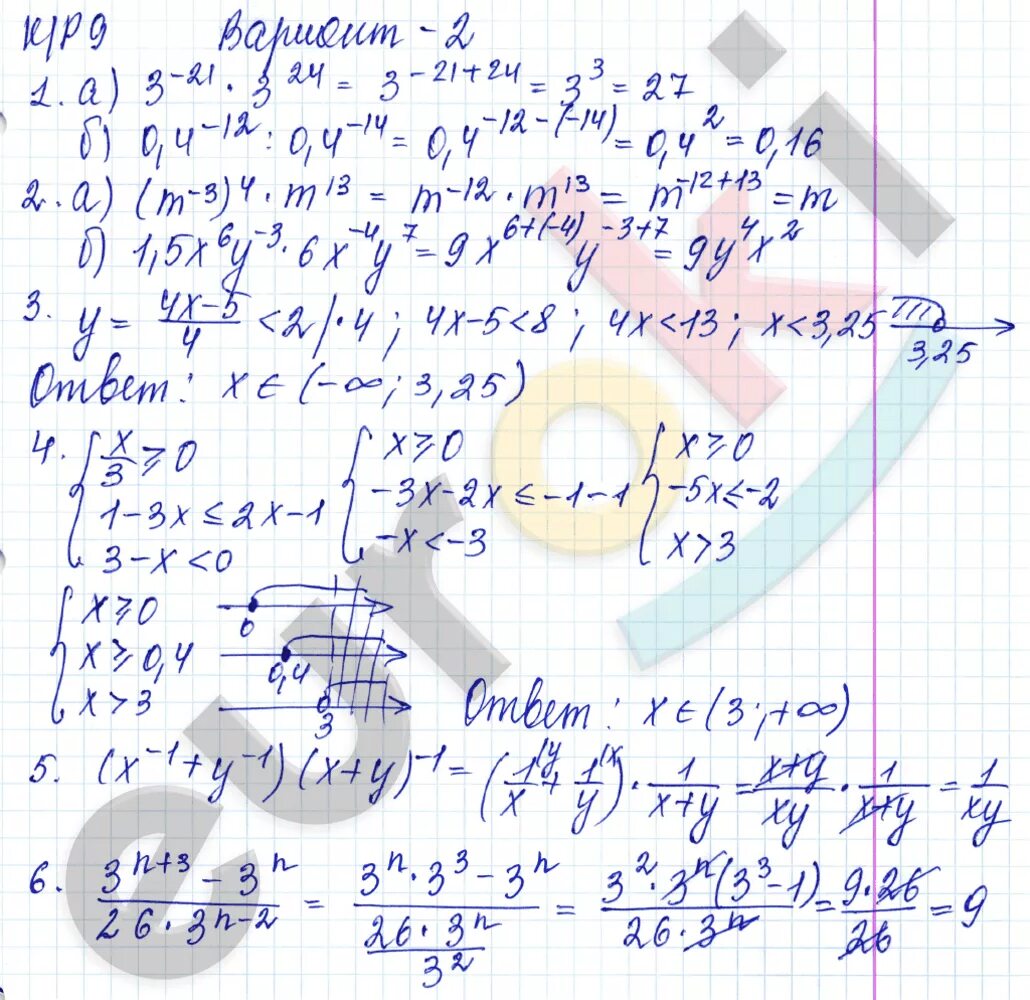 К/Р 9 Вариант - 2
1. а) 3^-21 · 3^24 = 3^-21+24 = 3^3 = 27
б) 0,4^-12 : 0,4^-14 = 0,4^-12-(-14) = 0,4^2 = 0,16
2. а) (m^-3)^4 · m^13 = m^-12 · m^13 = m^-12+13 = m
б) 1,5x^6y^-3 · 6x^-4y^7 = 9x^6+(-4)y^-3+7 = 9y^4x^2
3. y = (4x-5)/4 < 2 | · 4 ; 4x-5<8 ; 4x<13 ; x<3,25 3,25
Ответ: x ∈ (-∞; 3,25)
4. { x/3 ≥ 0 { x ≥ 0 { x ≥ 0
1-3x ≤ 2x-1 -3x-2x ≤ -1-1 -5x ≤ -2
3-x < 0 -x < -3 x > 3
{ x ≥ 0 0
x ≥ 0,4 0,4
x > 3 3 Ответ: x ∈ (3; +∞)
5. (x^-1 + y^-1)(x+y)^-1 = (1/x^(y + 1/y^(x) · 1/(x+y) = (x+y)/(xy) · 1/(x+y) = 1/(xy)
6. (3^n+3 - 3^n)/(26 · 3^n-2) = (3^n · 3^3 - 3^n)/((26 · 3^n)/3^2) = (3^2 · 3^n(3^3-1))/(26 · 3^n) = (9 · 26)/26 = 9
euroki